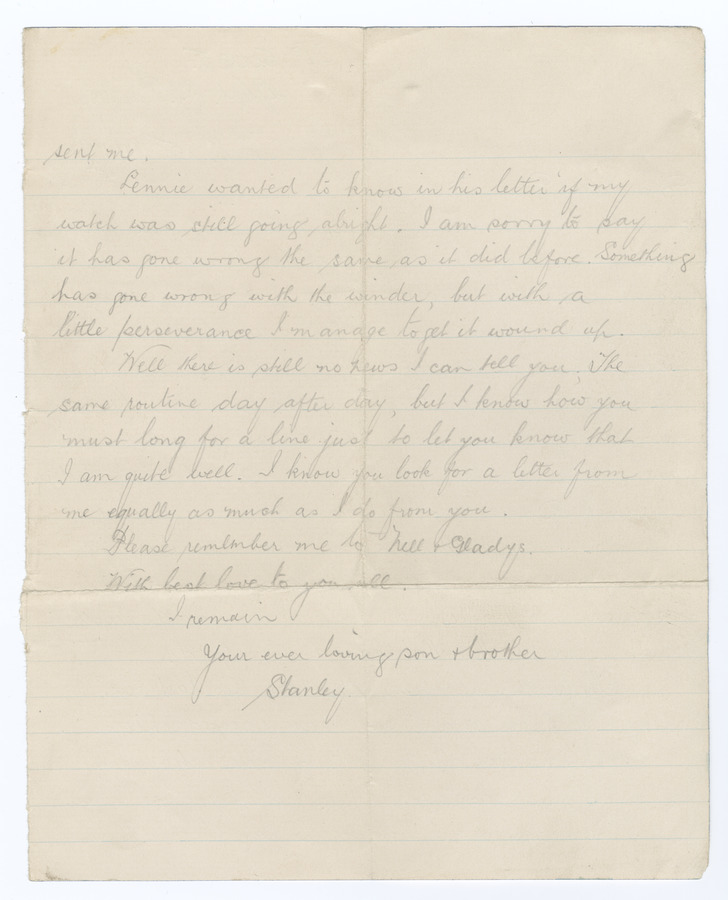 sent me.
Lennie wanted to know in his letter if my
watch was still going alright. I am sorry to say
it has gone wrong the same as it did before. Something
has gone wrong with the winder, but with a
little perseverance I manage to get it wound up.
Well there is still no news I can tell you. The
same routine day after day, but I know how you
must long for a line just to let you know that
I am quite well. I know you look for a letter from
me equally as much as I do from you.
Please remember me to Nell & Gladys.
With best love to you all.
I remain
Your ever loving son & brother
Stanley